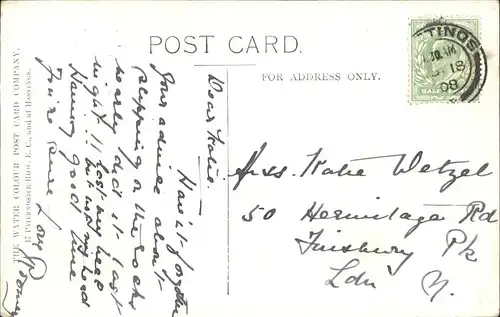 POST CARD.
FOR ADDRESS ONLY.
THE WATER COLOUR POST CARD COMPANY,
17 PATERNOSTER ROW, E.C., and at HASTINGS.
TINGS
18
08
HALF
Dear Katie.
Haven't forgotten
your advice about
slipping on the rocks
nearly did it last
night !! lost my heel
but not my head
Having good time
Love
Miss. Katie Wetzel
50 Hermitage Rd
Finsbury Pk
Ldn N.